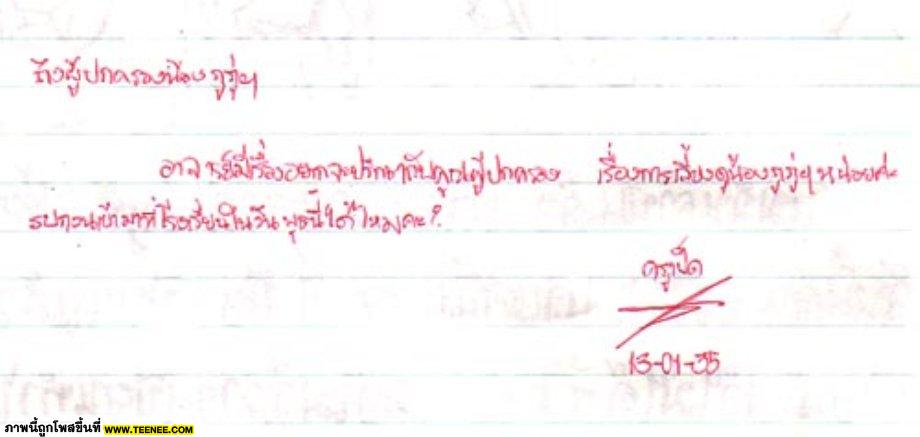 ถึงผู้ปกครองน้อง กู๋กู๋ฯ
อาจารย์มีเรื่องอยากจะปรึกษากับคุณผู้ปกครอง เรื่องการเลี้ยงดูน้องกู๋กู๋ฯ หน่อยค่ะ
รบกวนเข้ามาที่โรงเรียนในวันพุธนี้ได้ไหมคะ?
ครูเป็ด
13-01-35
ภาพนี้ถูกโพสขึ้นที่ WWW.TEENEE.COM